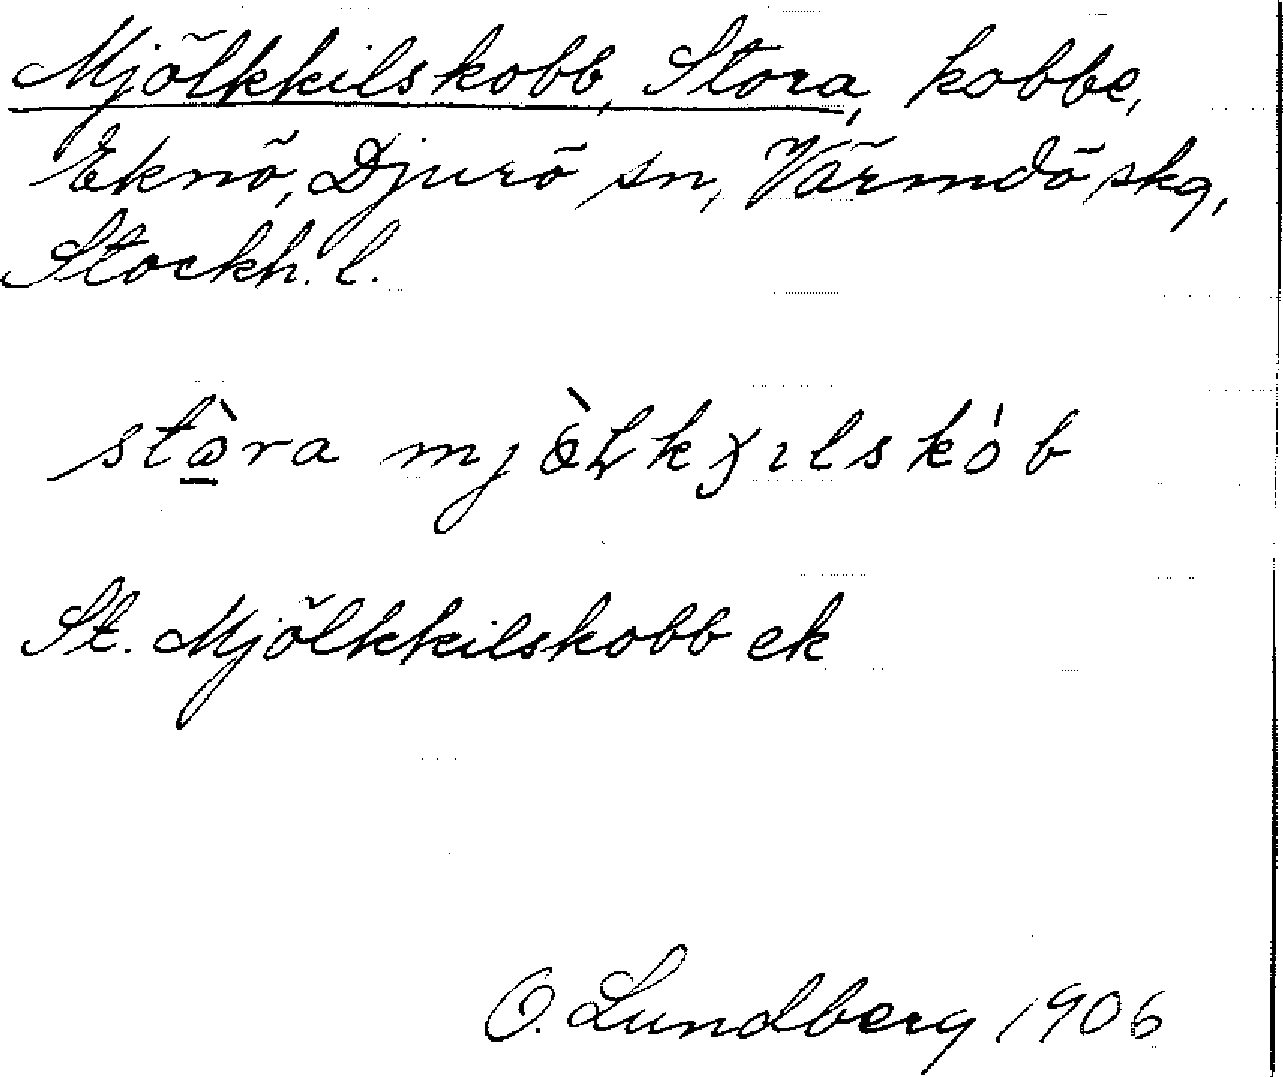 Mjölkkilskobb, Stora, kobbe,
Eknö, Djurö sn, Värmdö skg,
Stockh. l.
stɷ̀ra mjɷ̀ɬkꭓılskób
St. Mjölkkilskobb ek
O. Lundberg 1906